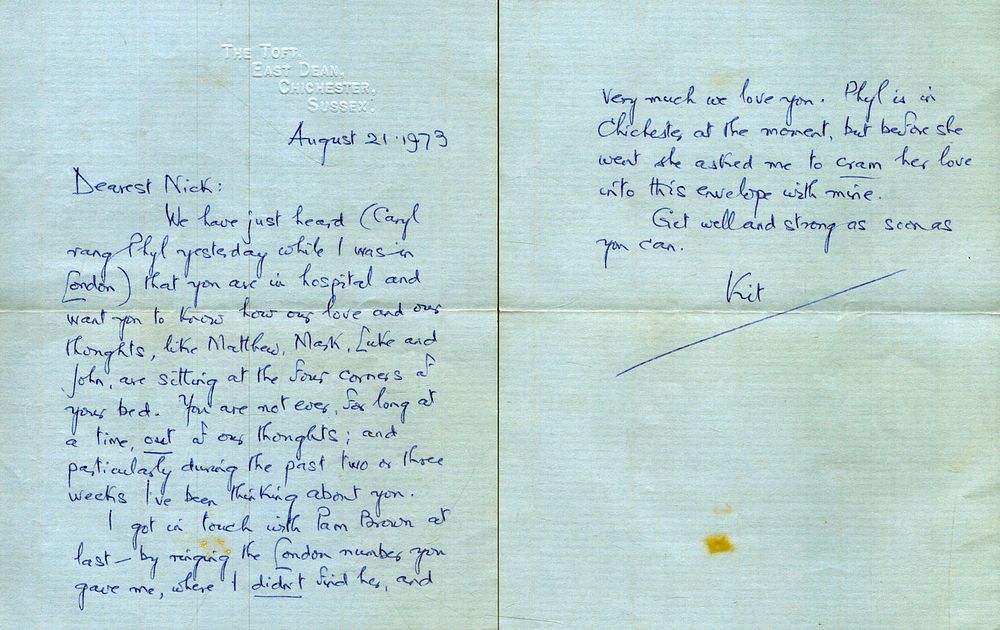 THE TOFT,
EAST DEAN,
CHICHESTER,
SUSSEX.
August 21·1973
Dearest Nick:
We have just heard (Caryl
rang Phyl yesterday while I was in
London) that you are in hospital and
want you to know how our love and our
thoughts, like Matthew, Mark, Luke and
John, are sitting at the four corners of
your bed. You are not ever, for long at
a time, out of our thoughts; and
particularly during the past two or three
weeks I've been thinking about you.
I got in touch with Pam Brown at
last – by ringing the London number you
gave me, where I didn't find her, and
very much we love you. Phyl is in
Chichester at the moment, but before she
went she asked me to cram her love
into this envelope with mine.
Get well and strong as soon as
you can.
Kit